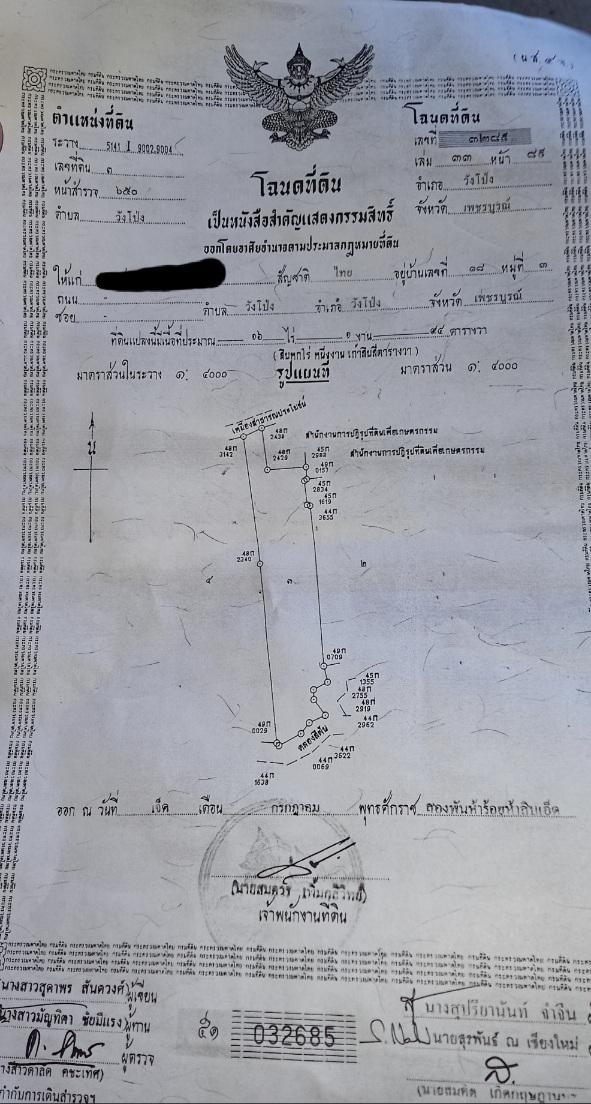 (น.ส. ๔ จ.)
ตำแหน่งที่ดิน
ระวาง 5141 I 9002,9004
เลขที่ดิน ๓
หน้าสำรวจ ๖๕๐
ตำบล วังโป่ง
โฉนดที่ดิน
เลขที่ ๓๒๘๕
เล่ม ๓๓ หน้า ๘๕
อำเภอ วังโป่ง
จังหวัด เพชรบูรณ์
โฉนดที่ดิน
เป็นหนังสือสำคัญแสดงกรรมสิทธิ์
ออกโดยอาศัยอำนาจตามประมวลกฎหมายที่ดิน
ให้แก่ สัญชาติ ไทย อยู่บ้านเลขที่ ๑๘ หมู่ที่ ๓
ถนน -
ซอย - ตำบล วังโป่ง อำเภอ วังโป่ง จังหวัด เพชรบูรณ์
ที่ดินแปลงนี้มีเนื้อที่ประมาณ ๑๖ ไร่ ๑ งาน ๙๔ ตารางวา
(สิบหกไร่ หนึ่งงาน เก้าสิบสี่ตารางวา)
มาตราส่วนในระวาง ๑: ๔๐๐๐
รูปแผนที่
มาตราส่วน ๑: ๔๐๐๐
เหมืองสาธารณประโยชน์
48ก 2438
สำนักงานการปฏิรูปที่ดินเพื่อเกษตรกรรม
48ก 3142
48ก 2429
45ก 2688
สำนักงานการปฏิรูปที่ดินเพื่อเกษตรกรรม
49ก 0157
45ก 2834
45ก 1619
44ก 3655
48ก 2340
๔
๓
๒
49ก 0709
45ก 1355
48ก 2755
48ก 2919
44ก 2962
49ก 0029
44ก 3622
44ก 0069
44ก 1638
ออก ณ วันที่ เจ็ด เดือน กรกฎาคม พุทธศักราช สองพันห้าร้อยห้าสิบเอ็ด
เจ้าพนักงานที่ดิน
นางสาวสุดาพร สันดวงศ์ ผู้เขียน
นางสาวมัญทิตา ชัยมีแรง ผู้ทาน
ผู้ตรวจ
032685
นางสุปรียานันท์ จำงิน
นายสุรพันธ์ ณ เชียงใหม่